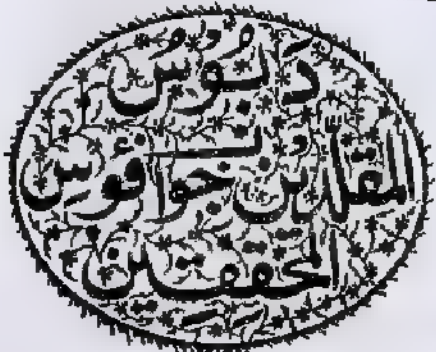 دَبُّوسُ
المقلدين جواب فؤس
المحققين